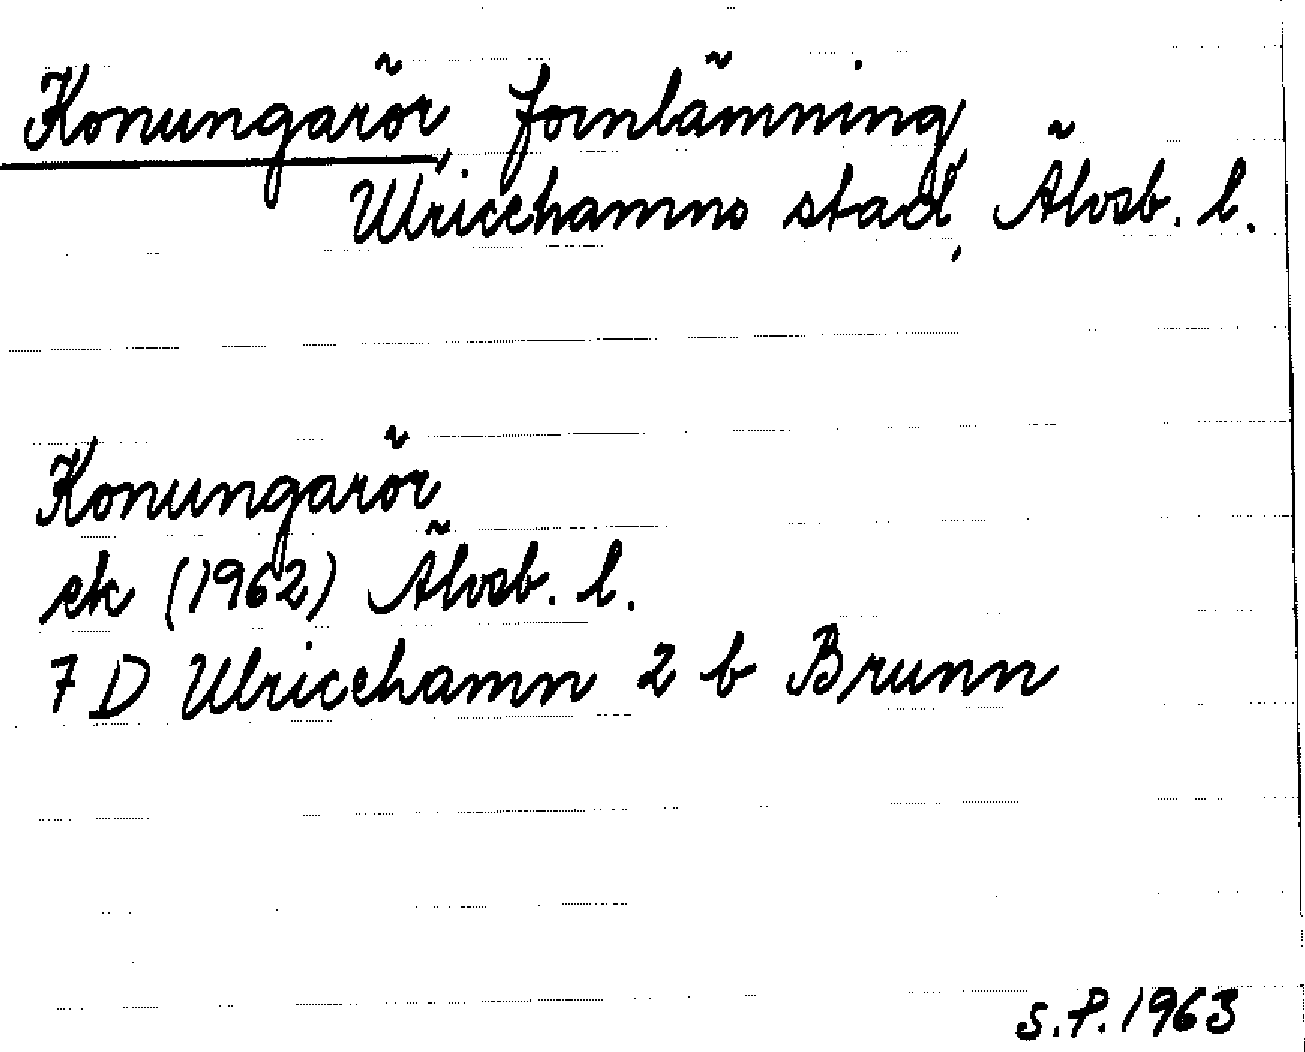 Konungarör, fornlämning,
Ulricehamns stad, Älvsb. l.
Konungarör
ek (1962) Älvsb. l.
7 D Ulricehamn 2 b Brunn
S.P. 1963